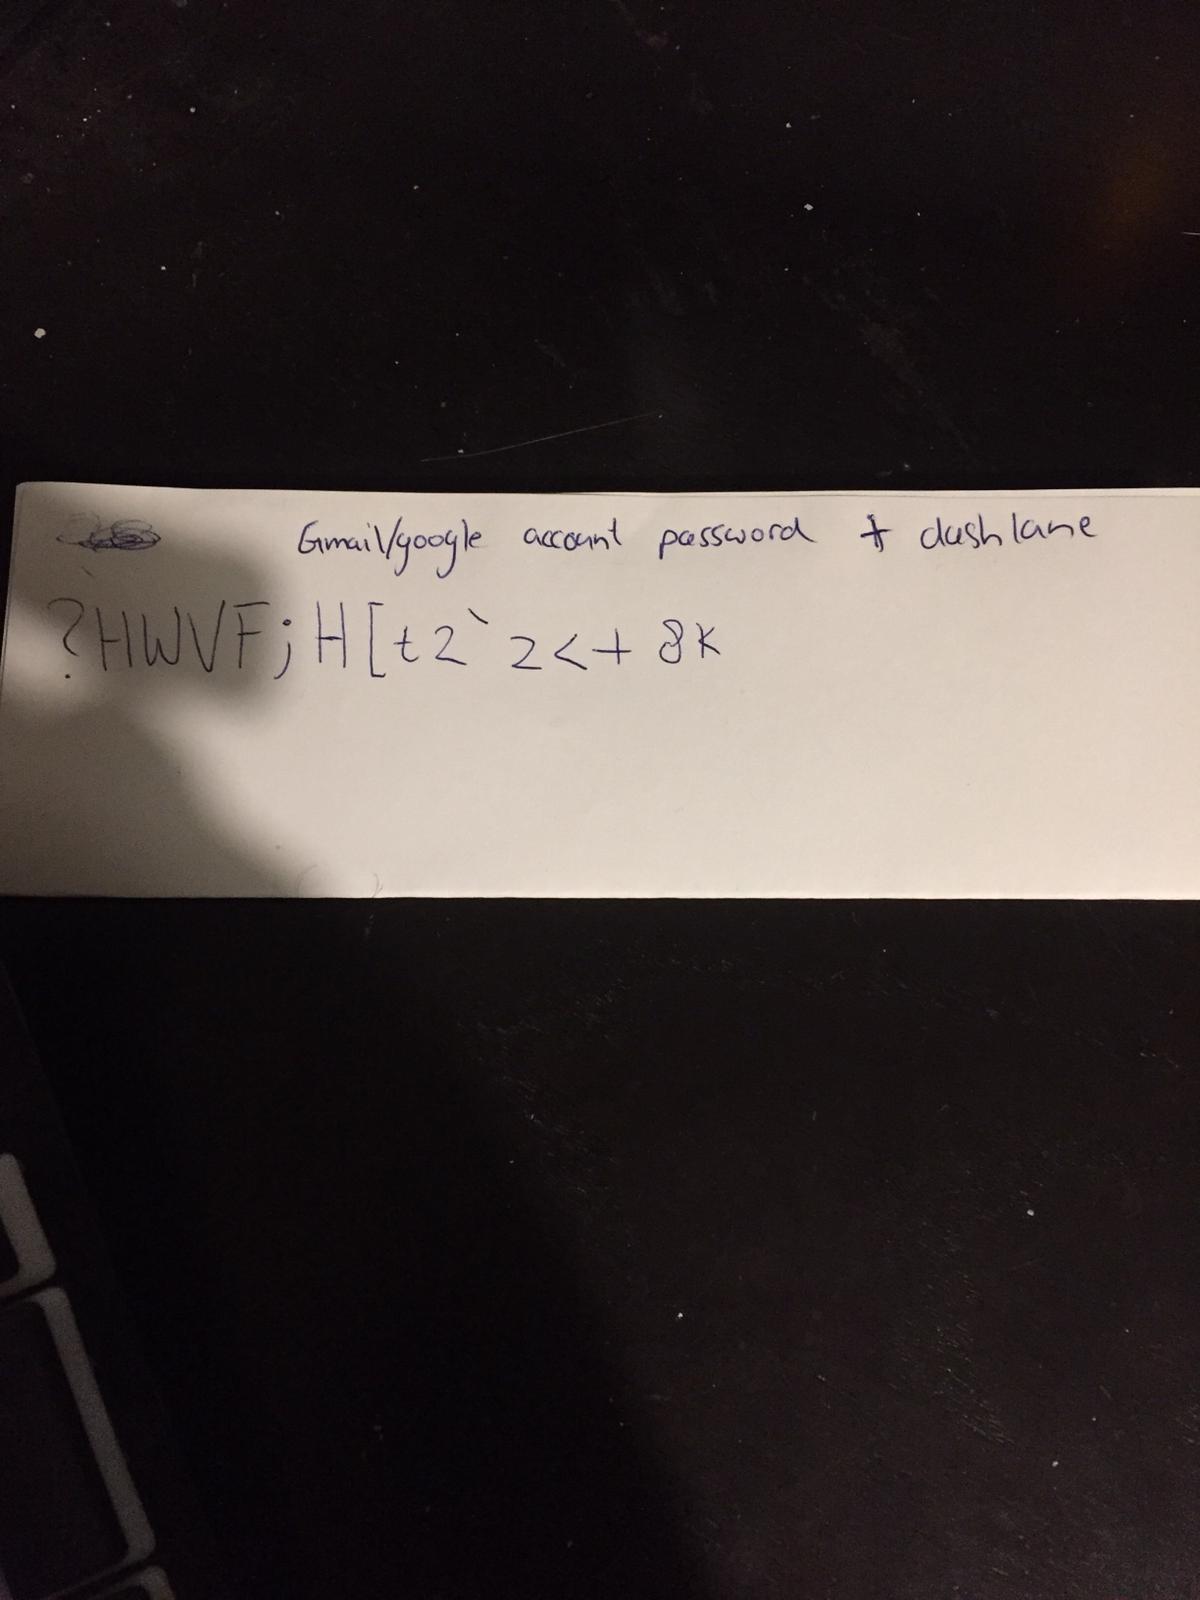 Gmail/google account password + dashlane
?HWVF;H[t2`z<+8K